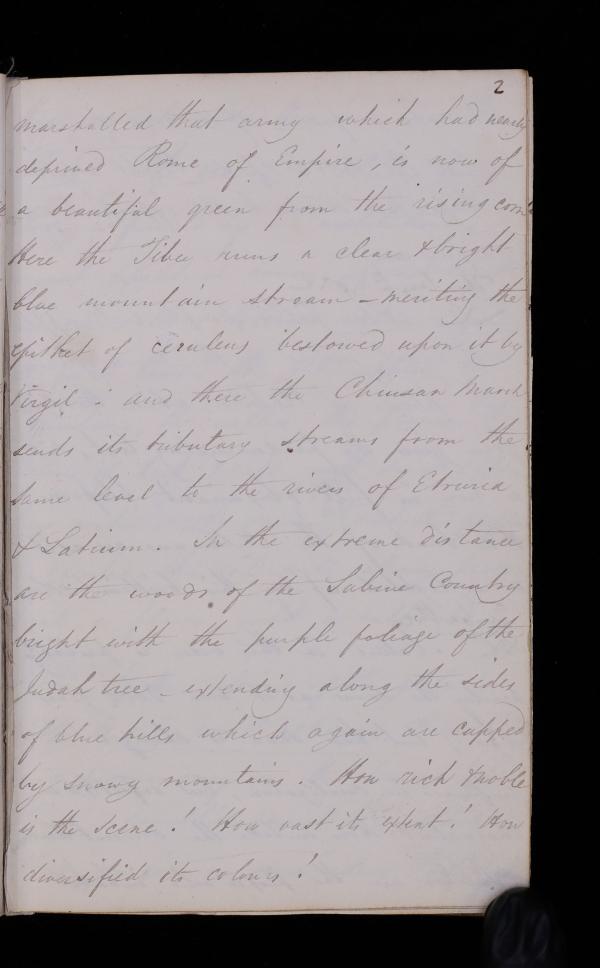 2
marshalled that army which had nearly
deprived Rome of Empire, is now of
a beautiful green from the rising corn.
Here the Tiber runs a clear & bright
blue mountain stream – meriting the
epithet of ceruleus bestowed upon it by
Virgil; and there the Chiusan Marsh
sends its tributary streams from the
same level to the rivers of Etruria
& Latium. In the extreme distance
are the woods of the Sabine Country
bright with the purple foliage of the
Judah tree – extending along the sides
of blue hills which again are capped
by snowy mountains. How rich & noble
is the scene! How vast its extent! How
diversified its colours!